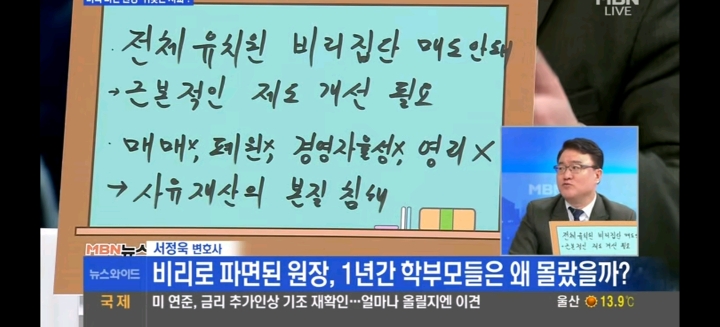 MBN
LIVE
· 전체 유치원 비리집단 매도안돼
→ 근본적인 제도 개선 필요
· 매매x, 폐원x, 경영자율성x, 영리 X
→ 사유재산의 본질 침해
MBN
전체 유치원 비리집단 매도안돼
→근본적인 제도 개선 필요
MBN뉴스
서정욱 변호사
뉴스와이드
비리로 파면된 원장, 1년간 학부모들은 왜 몰랐을까?
국 제
미 연준, 금리 추가인상 기조 재확인…얼마나 올릴지엔 이견
울산 13.9℃